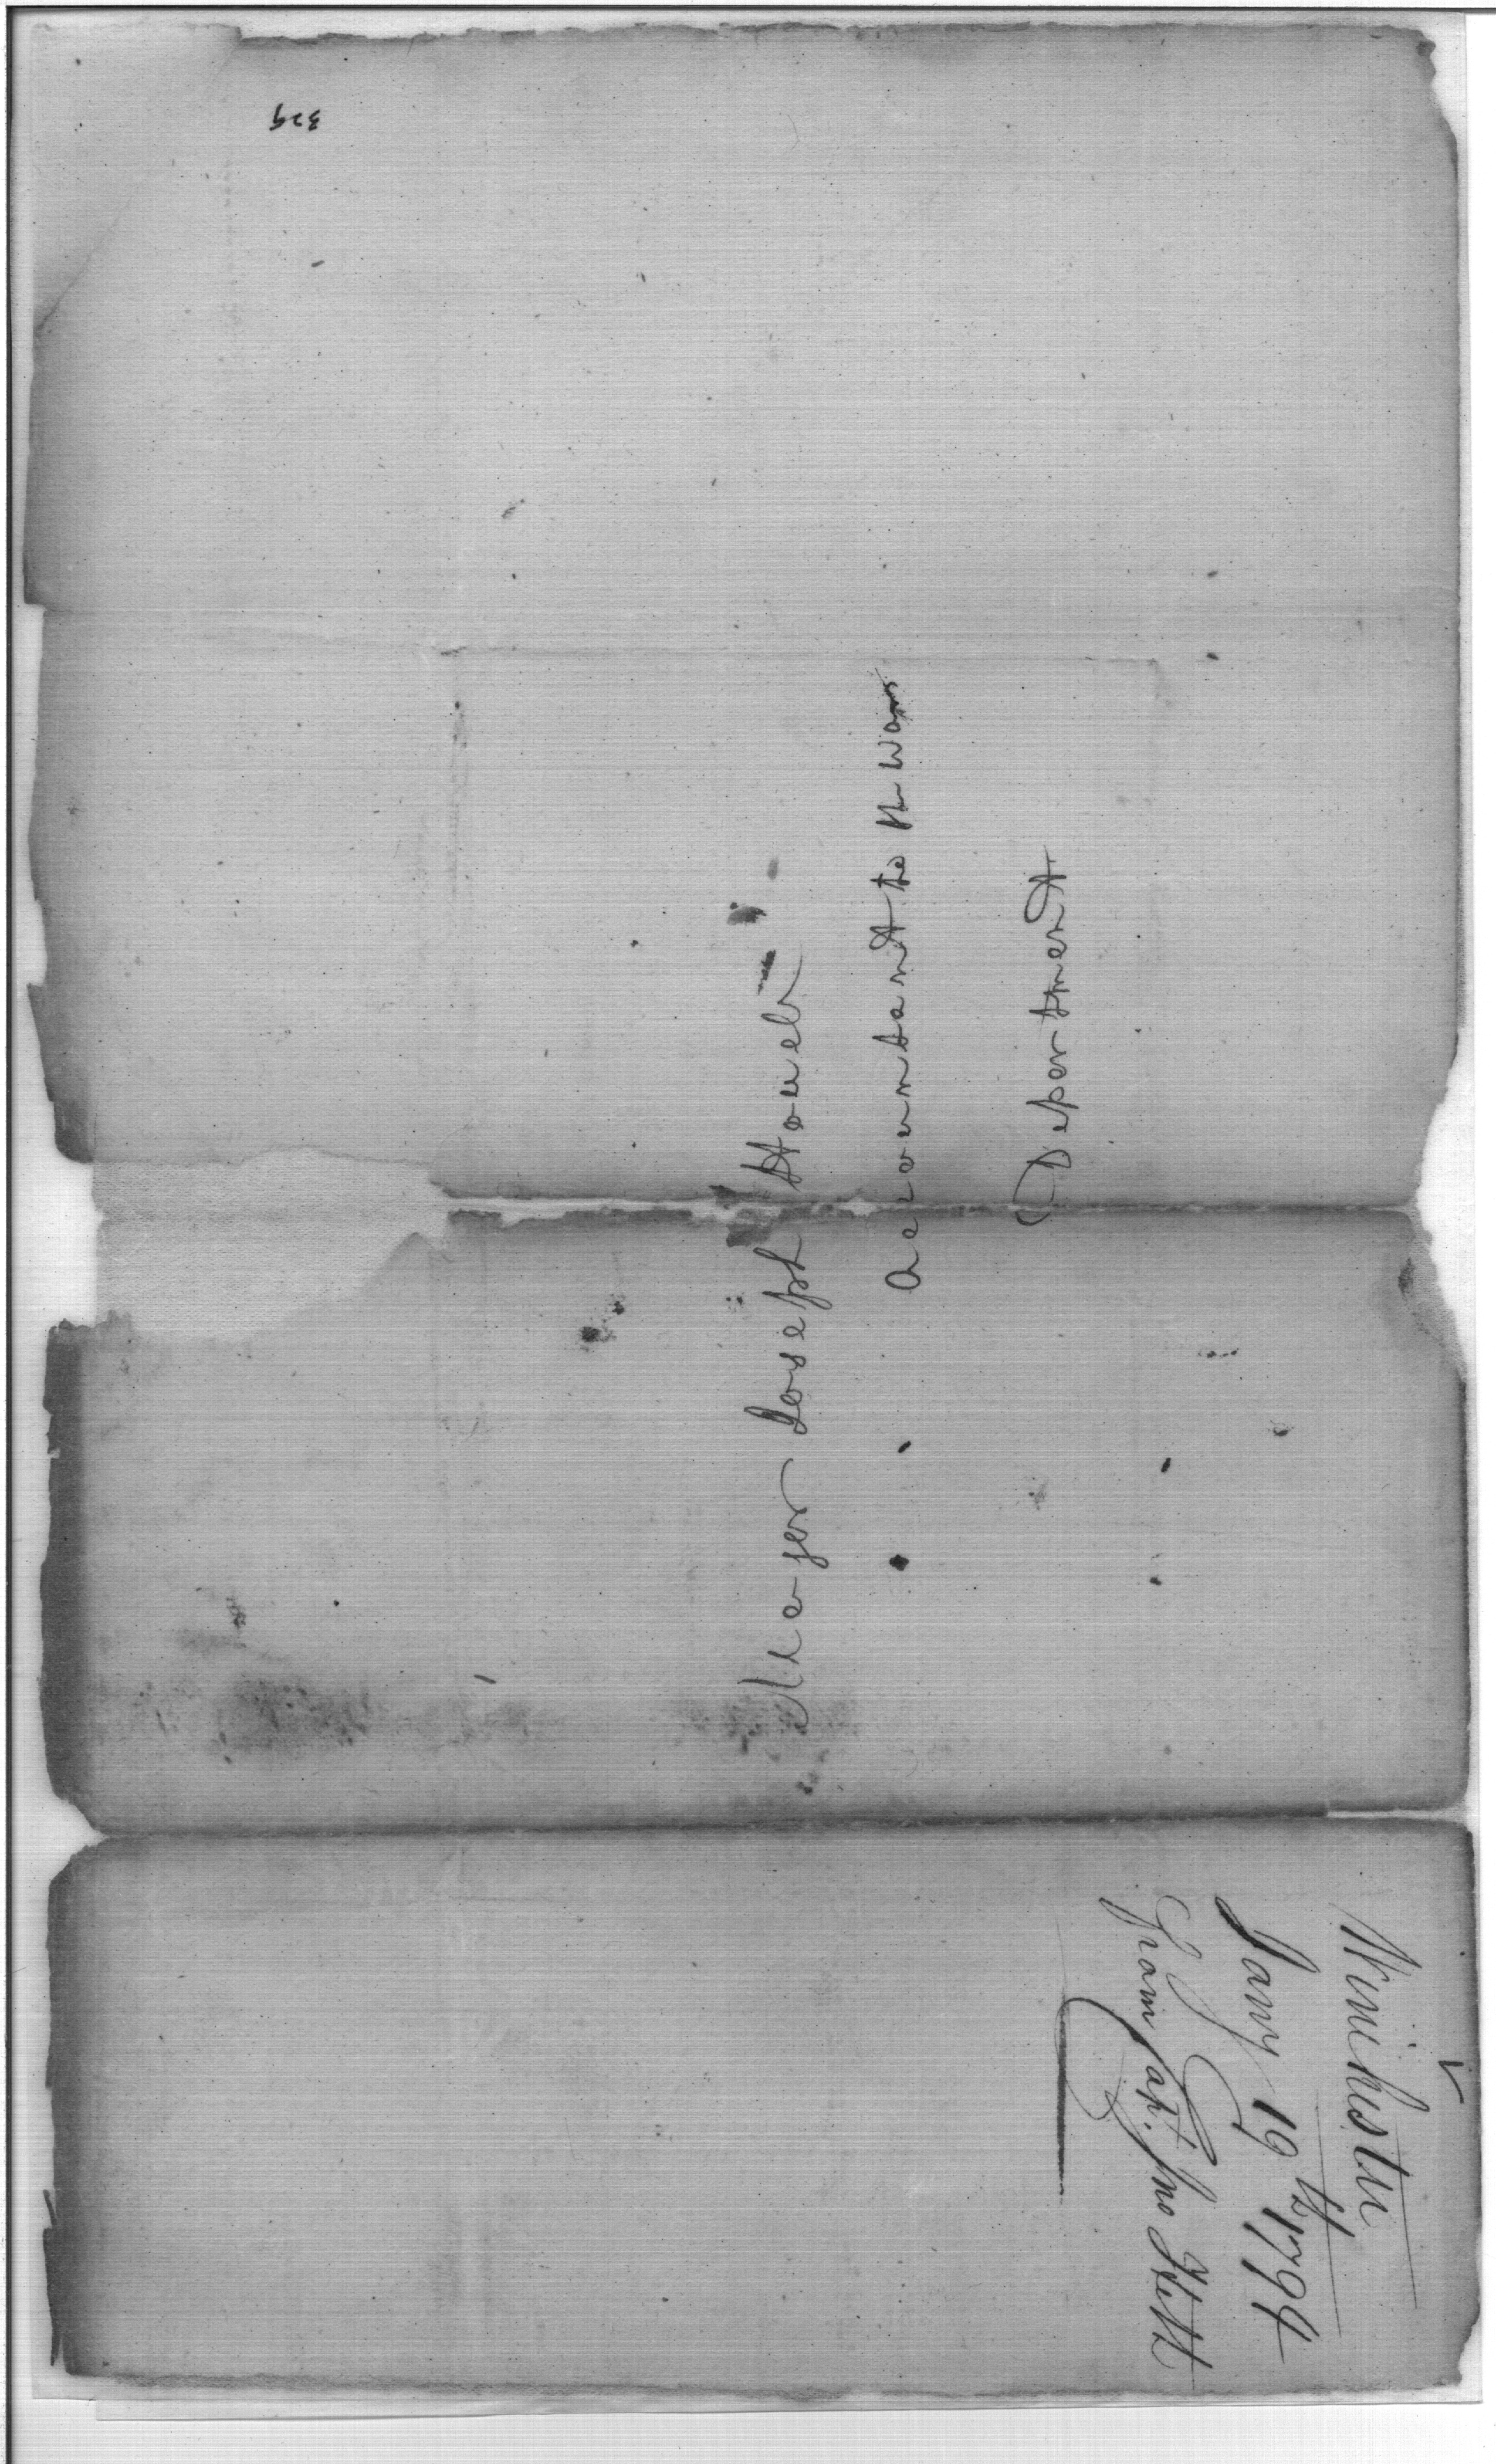 329
Major Joseph Houel
Accountant to the War
Department
Winchester
Jany 19th 1794
From Capt. Jno Heth